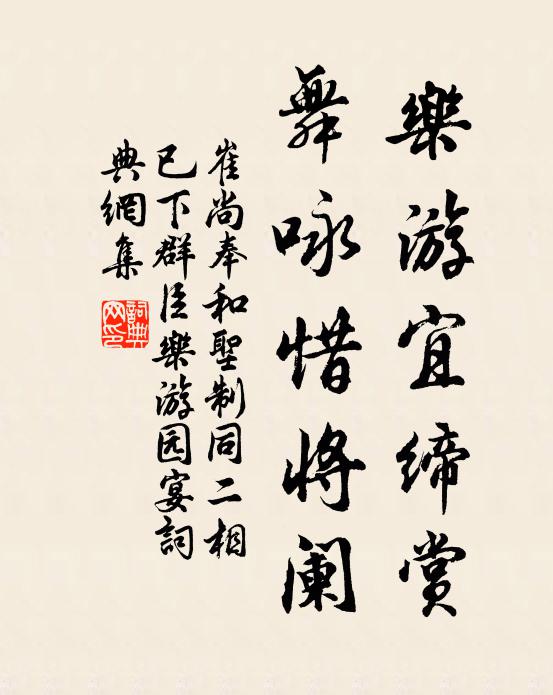 樂游宜締賞
舞咏惜將阑
崔尚奉和聖制同二相
已下群臣樂游园宴詞
典網集
詞典
网印